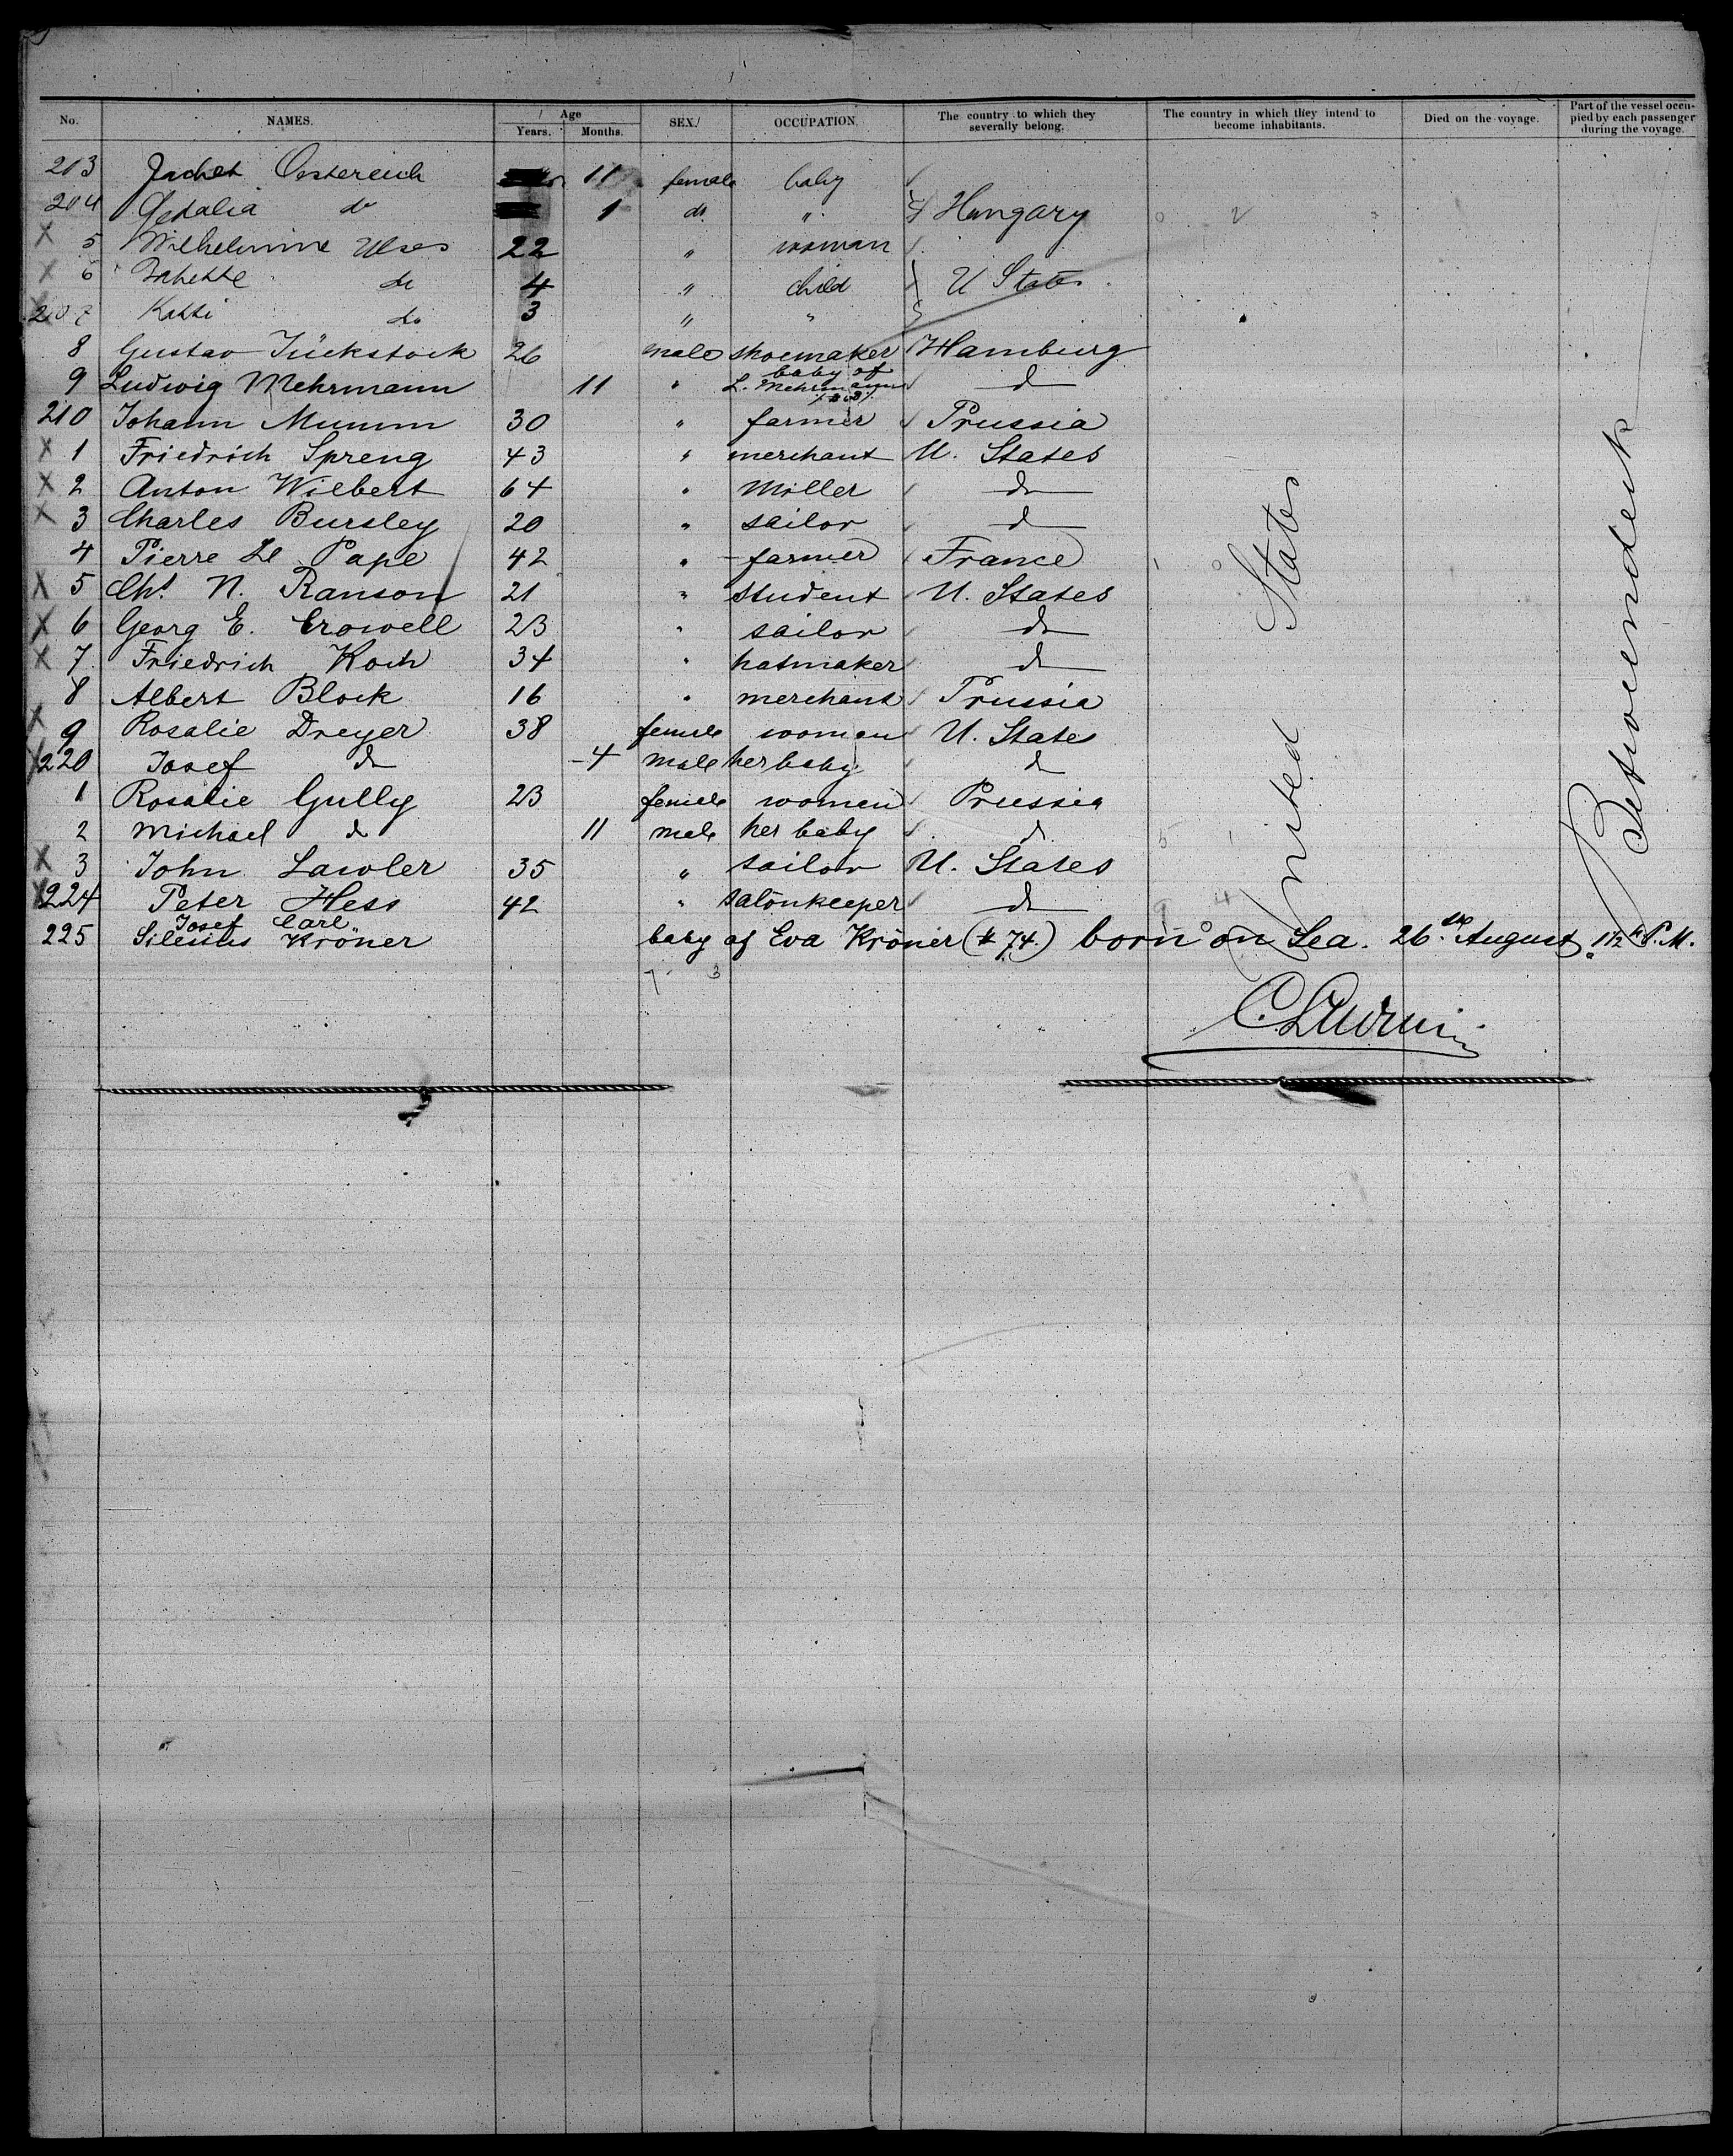 No. NAMES. Age Years. Months. SEX. OCCUPATION. The country to which they severally belong. The country in which they intend to become inhabitants. Died on the voyage. Part of the vessel occupied by each passenger during the voyage.
213 Jachet Oestereich 11 female baby
204 Gedalia do 1 do. " Hungary
X 5 Wilhelmine 22 " woman
X 6 do 4 " child U States
207 Kathi do 3 " "
8 Gustav Tückstock 26 male shoemaker Hamburg
9 Ludwig Mehrmann 11 " baby of L. Mehrmann do
210 Johann Mumm 30 " farmer Prussia
X 1 Friedrich Spreng 43 " merchant U. States
X 2 Anton Wilbert 64 " Miller do
X 3 Charles Bursley 20 " sailor do
4 Pierre Le Pape 42 " farmer France
X 5 Chs. N. Ranson 21 " student U. States
X 6 Georg E. Crowell 23 " sailor do
X 7 Friedrich Koch 34 " hatmaker do
8 Albert Block 16 " merchant Prussia
X 9 Rosalie Dreyer 38 female woman U. States
X 220 Josef do 4 male her baby do
1 Rosalie Gully 23 female women Prussia
2 Michael do 11 male her baby do
X 3 John Lawler 35 " sailor U. States
X 224 Peter Hess 42 " salonkeeper do
225 Silesius Josef Carl Kröner baby of Eva Kröner (# 74.) born on Sea. 26. August, P.M.
United States
Betweendeck